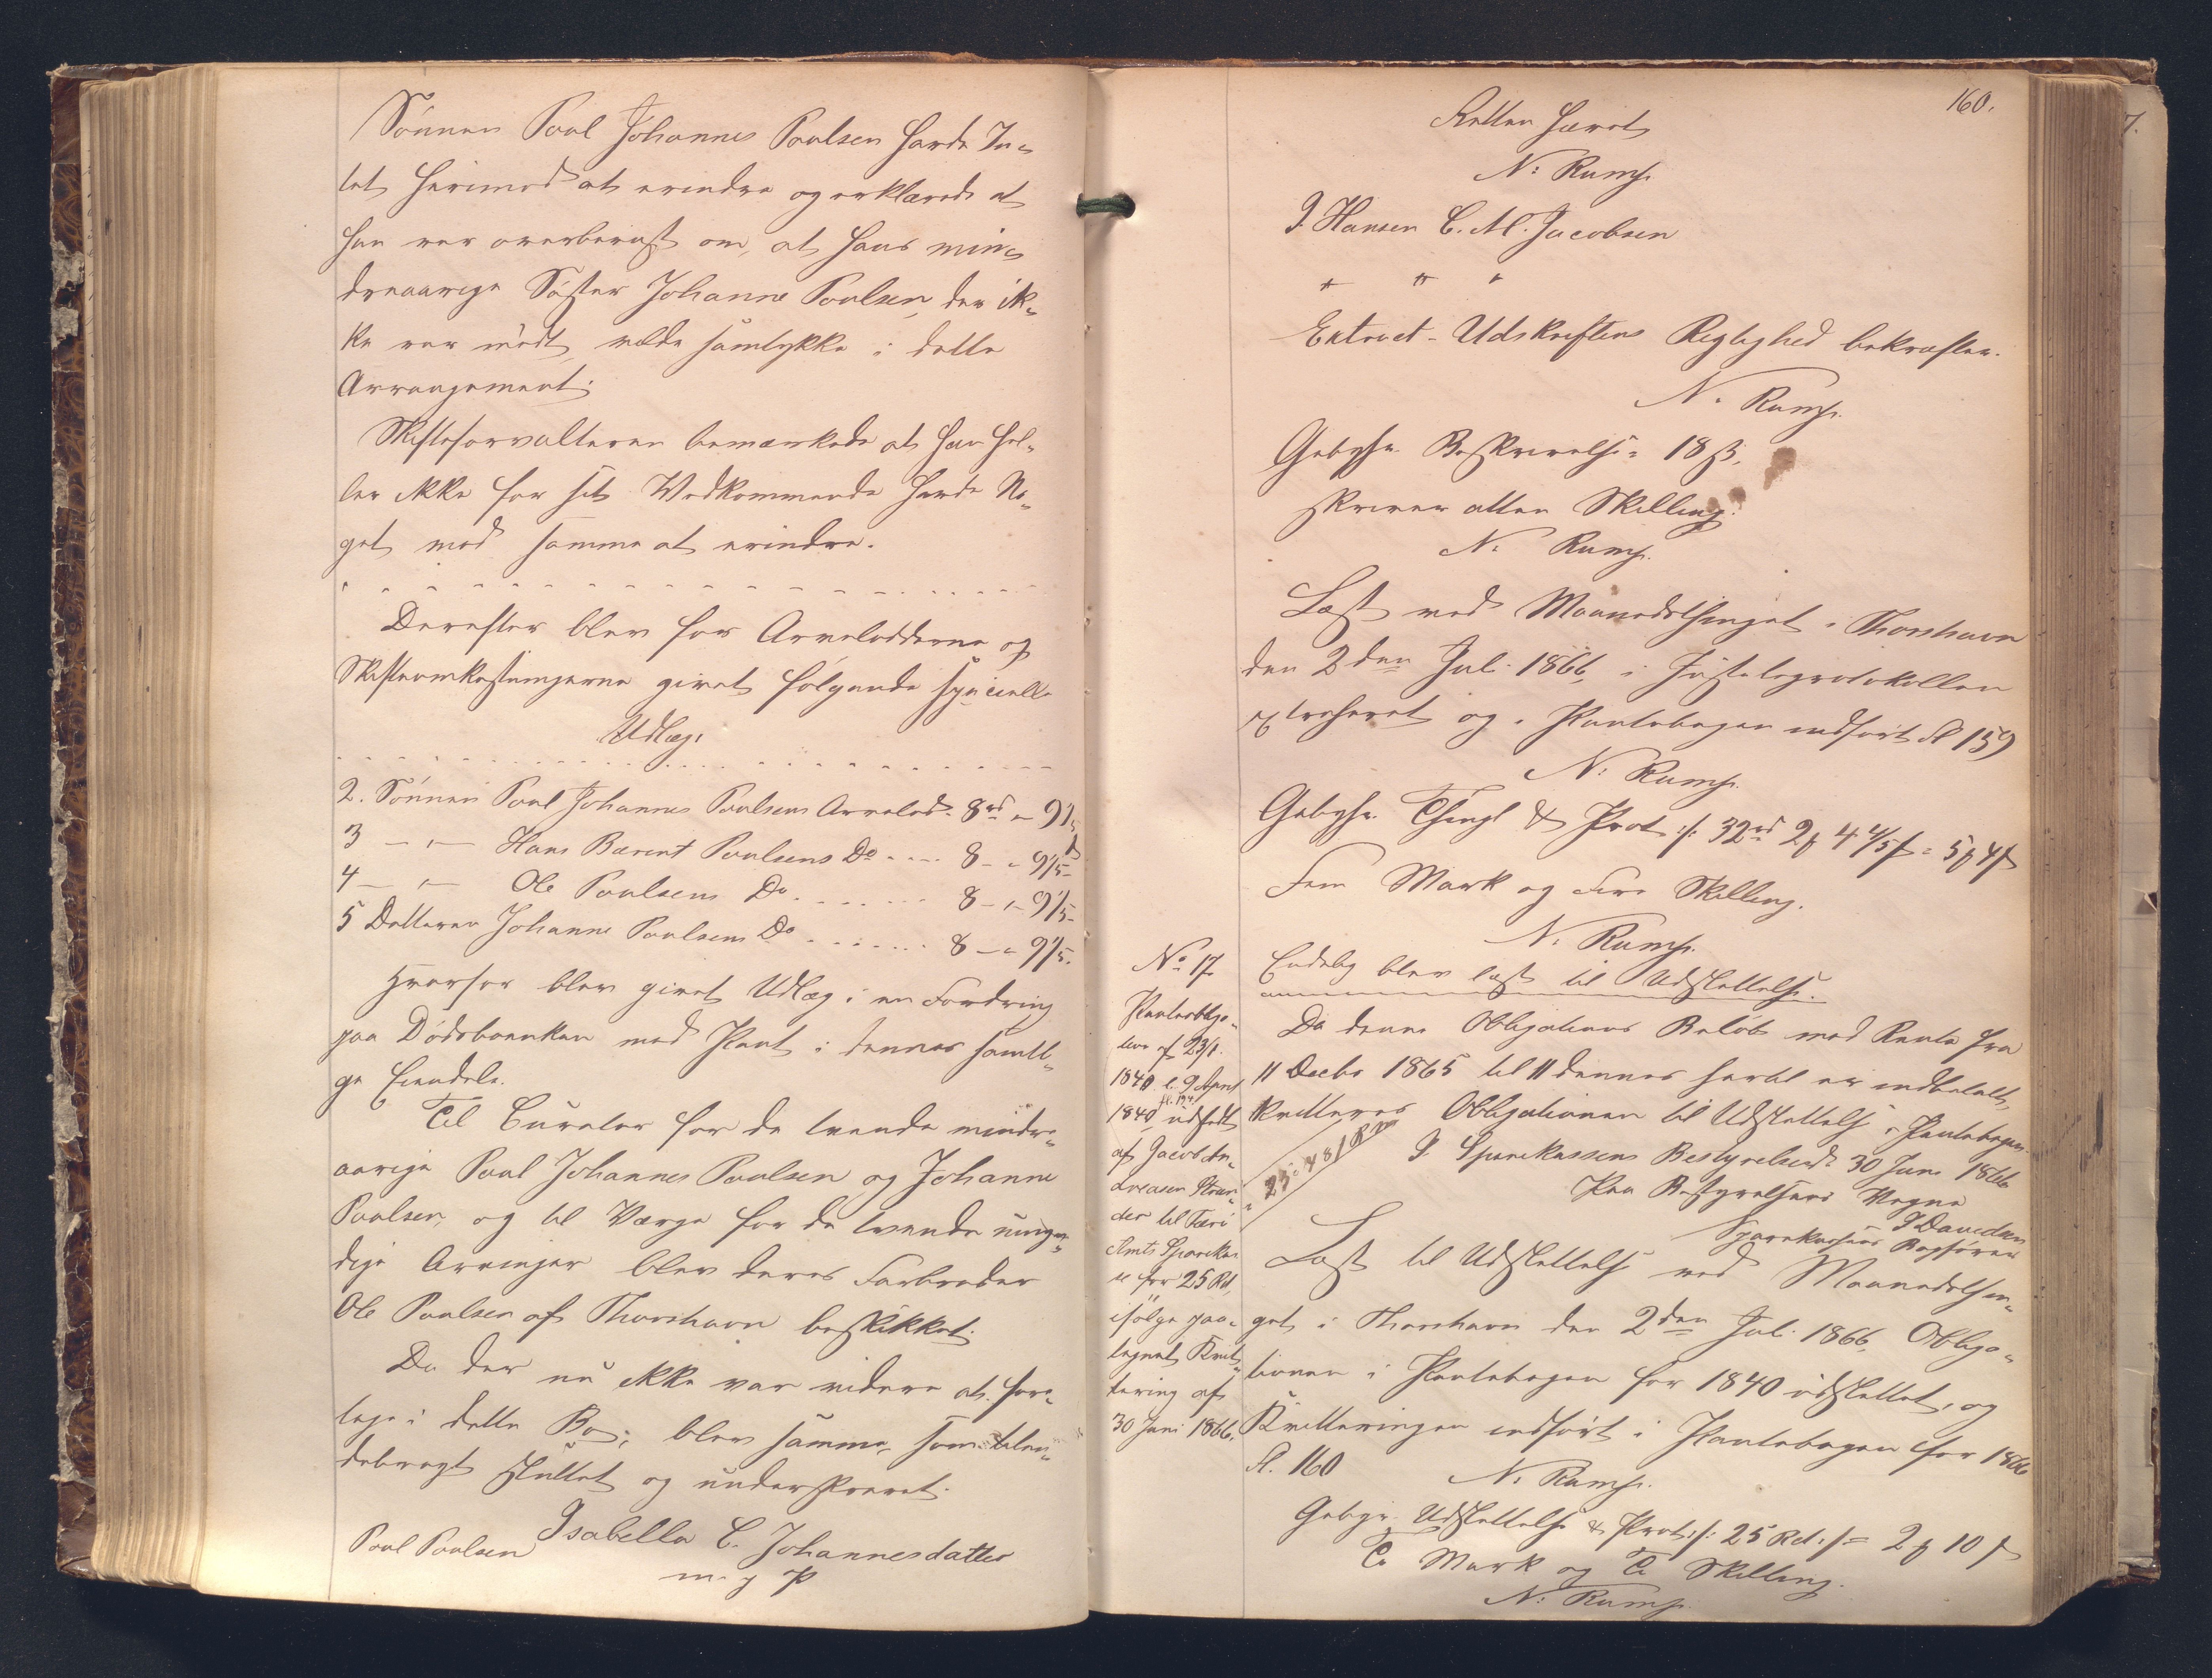 Sønnen Poul Johannes Poulsen havde In-
tet herimod at erindre og erklærede at
han var overbevist om, at hans min-
dreaarige Søster Johanne Poulsen, der ik-
ke var mødt vilde samtykke i dette
Arrangement.
Skifteforvalteren bemærkede at han hel-
ler ikke for sit Vedkommende havde No-
get mod samme at erindre.
Derefter blev for Arvelodderne og
Skifteomkostningerne givet følgende specielle
Udlæg:
2. Sønnen Poul Johannes Poulsens Arvelod 8 rd " 9 1/5
3 — " — Hans Barent Poulsens Do .... 8 - " 9 1/5 -
4 — " — Ole Poulsens Do ....... 8 - " - 9 1/5 -
5 Datteren Johanne Poulsens Do ....... 8 - " 9 1/5.
hvorfor blev givet Udlæg i en Fordring
paa Dødsboenken med Pant i dennes samtl-
ge Eiendele.
Til Curator for de tvende mindre-
aarige Poul Johannes Poulsen og Johanne
Poulsen, og til Værge for de tvende umyn-
dige Arvinger blev deres Farbroder
Ole Poulsen af Thorshavn beskikket.
Da der nu ikke var videre at fore-
tage i dette Bo, blev samme, som tilen-
debragt sluttet og underskrevet.
Poul Poulsen Isabella C. Johannesdatter
m. p. P
160.
Retten hævet
N: Rump.
J. Hansen C. M. Jacobsen
" " "
Extract-Udskriftens Rigtighed bekræftes.
N. Rump.
Gebyhr. Beskrivelse = 18 ß,
skriver atten Skilling.
N: Rump.
Læst ved Maanedsthinget i Thorshavn
den 2den Juli 1866, i Justitsprotokollen
extraheret og i Pantebogen indført Fl 159
N: Rump.
Gebyhr. Thingl & Prot :/: 32 rd 2 ƒ 4 4/5 ß = 5 ƒ 4 ß
Fem Mark og Fire Skilling.
N. Rump.
Endelig blev læst til Udslettelse.
No 17.
Panteobliga-
tion af 23/1.
1840 l. 9 April
1840, fl. 194 udstedt
af Jacob An-
dreasen
til Færø
Amts Sparekas-
se for 25 Rd,
ifølge paa-
tegnet Kvit-
tering af
30 Juni 1866.
Da denne Obligations Beløb med Rente fra
11 Decbr 1865 til 11 dennes hertil er indbetalt,
kvitteres Obligationen til Udslettelse i Pantebogen.
I Sparekassens Bestyrelse d. 30 Juni 1866
Paa Bestyrelsens Vegne
J Davidsen
Sparekassens Bogfører
Læst til Udslettelse ved Maanedsthin-
get i Thorshavn den 2den Juli 1866, Obliga-
tionen i Pantebogen for 1840 udslettet, og
Kvitteringen indført i Pantebogen for 1866
Fl. 160
N. Rump.
Gebyr. Udslettelse & Prot :/: 25 Rd :/: = 2 ƒ 10 ß
To Mark og Ti Skilling.
N: Rump.